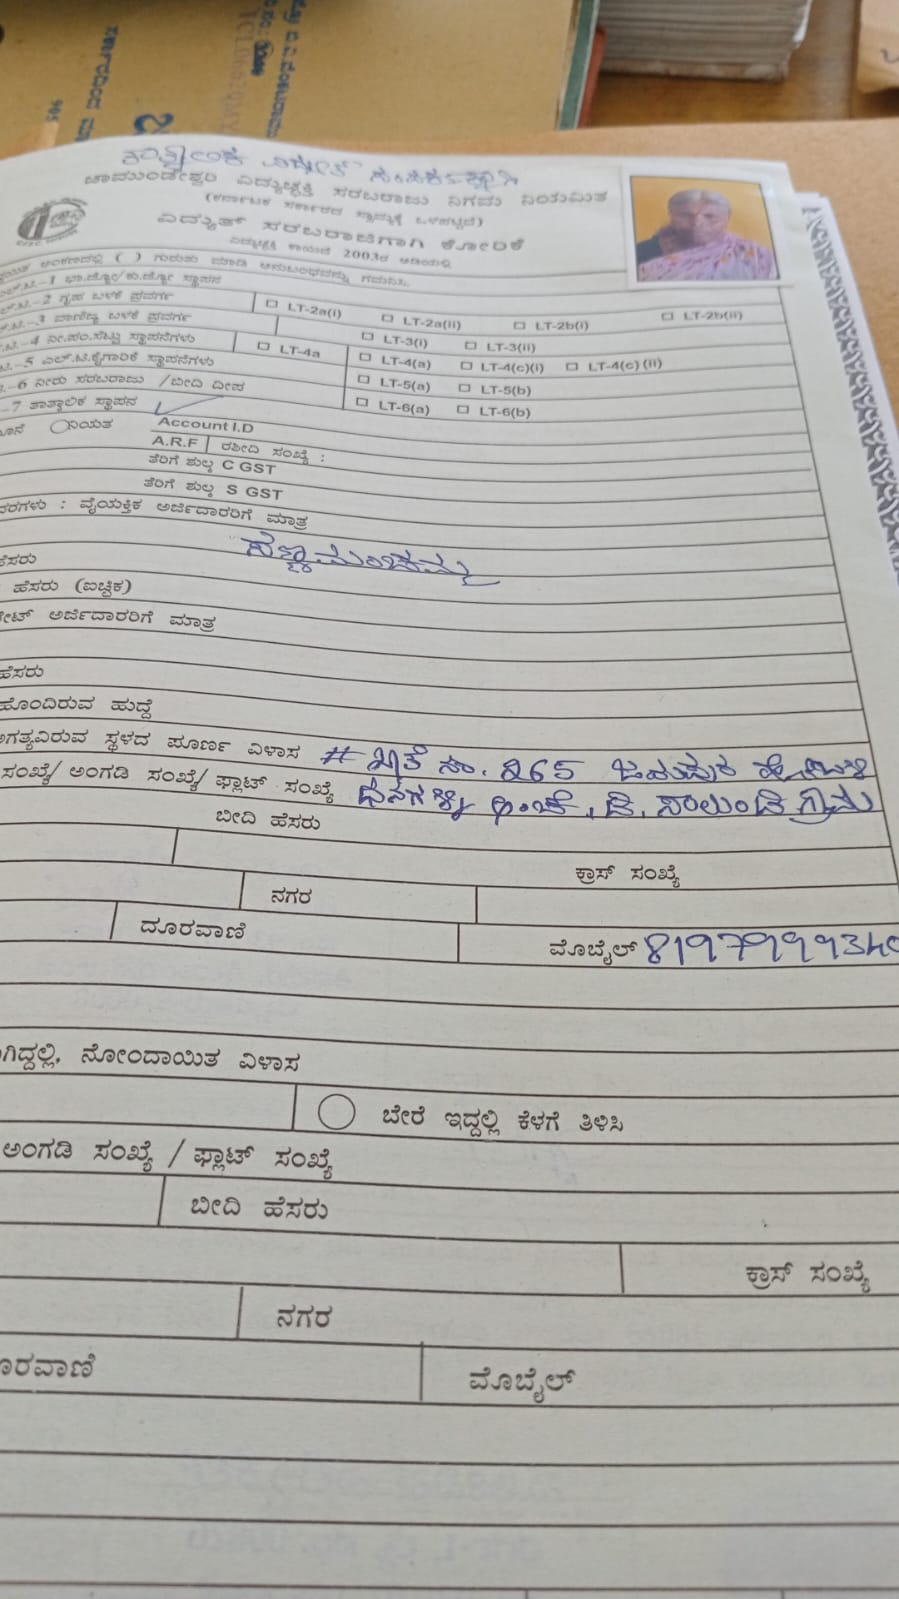 ಚಾಮುಂಡೇಶ್ವರಿ ವಿದ್ಯುಚ್ಛಕ್ತಿ ಸರಬರಾಜು ನಿಗಮ ನಿಯಮಿತ
(ಕರ್ನಾಟಕ ಸರ್ಕಾರದ ಸ್ವಾಮ್ಯಕ್ಕೆ ಒಳಪಟ್ಟಿದೆ)
ವಿದ್ಯುತ್ ಸರಬರಾಜಿಗಾಗಿ ಕೋರಿಕೆ
ವಿದ್ಯುಚ್ಛಕ್ತಿ ಕಾಯಿದೆ 2003ರ ಅಡಿಯಲ್ಲಿ
( ) ಗುರುತು ಮಾಡಿ
-1 ಭಾ.ಜ್ಯೋ/ಕು.ಜ್ಯೋ ಸ್ಥಾಪನ
-2 ಗೃಹ ಬಳಕೆ ಪ್ರವರ್ಗ LT-2a(i) LT-2a(ii) LT-2b(i) LT-2b(ii)
-3 ವಾಣಿಜ್ಯ ಬಳಕೆ ಪ್ರವರ್ಗ LT-3(i) LT-3(ii)
-4 ನೀ.ಪಂ.ಸೆಟ್ಟು ಸ್ಥಾಪನೆಗಳು LT-4a LT-4(a) LT-4(c)(i) LT-4(c)(ii)
-5 ಎಲ್.ಟಿ.ಕೈಗಾರಿಕೆ ಸ್ಥಾಪನೆಗಳು LT-5(a) LT-5(b)
-6 ನೀರು ಸರಬರಾಜು /ಬೀದಿ ದೀಪ LT-6(a) LT-6(b)
-7 ತಾತ್ಕಾಲಿಕ ಸ್ಥಾಪನ
ನಿಯತ Account I.D
A.R.F ರಶೀದಿ ಸಂಖ್ಯೆ :
ತೆರಿಗೆ ಶುಲ್ಕ C GST
ತೆರಿಗೆ ಶುಲ್ಕ S GST
: ವೈಯಕ್ತಿಕ ಅರ್ಜಿದಾರರಿಗೆ ಮಾತ್ರ
ಹೆಸರು ಸಣ್ಣಮಂಚಮ್ಮ
ಹೆಸರು (ಐಚ್ಛಿಕ)
ಅರ್ಜಿದಾರರಿಗೆ ಮಾತ್ರ
ಹೆಸರು
ಹೊಂದಿರುವ ಹುದ್ದೆ
ಅಗತ್ಯವಿರುವ ಸ್ಥಳದ ಪೂರ್ಣ ವಿಳಾಸ # ಖಾತೆ ನಂ. 265 ಜಯಪುರ ಹೋಬಳಿ
ಸಂಖ್ಯೆ/ ಅಂಗಡಿ ಸಂಖ್ಯೆ/ ಫ್ಲಾಟ್ ಸಂಖ್ಯೆ ಅಂಚೆ, ಡಿ. ಸಾಲುಂಡಿ ಗ್ರಾಮ
ಬೀದಿ ಹೆಸರು
ಕ್ರಾಸ್ ಸಂಖ್ಯೆ
ನಗರ
ದೂರವಾಣಿ ಮೊಬೈಲ್ 8197999340
ನೋಂದಾಯಿತ ವಿಳಾಸ
ಬೇರೆ ಇದ್ದಲ್ಲಿ ಕೆಳಗೆ ತಿಳಿಸಿ
ಅಂಗಡಿ ಸಂಖ್ಯೆ / ಫ್ಲಾಟ್ ಸಂಖ್ಯೆ
ಬೀದಿ ಹೆಸರು
ಕ್ರಾಸ್ ಸಂಖ್ಯೆ
ನಗರ
ದೂರವಾಣಿ ಮೊಬೈಲ್